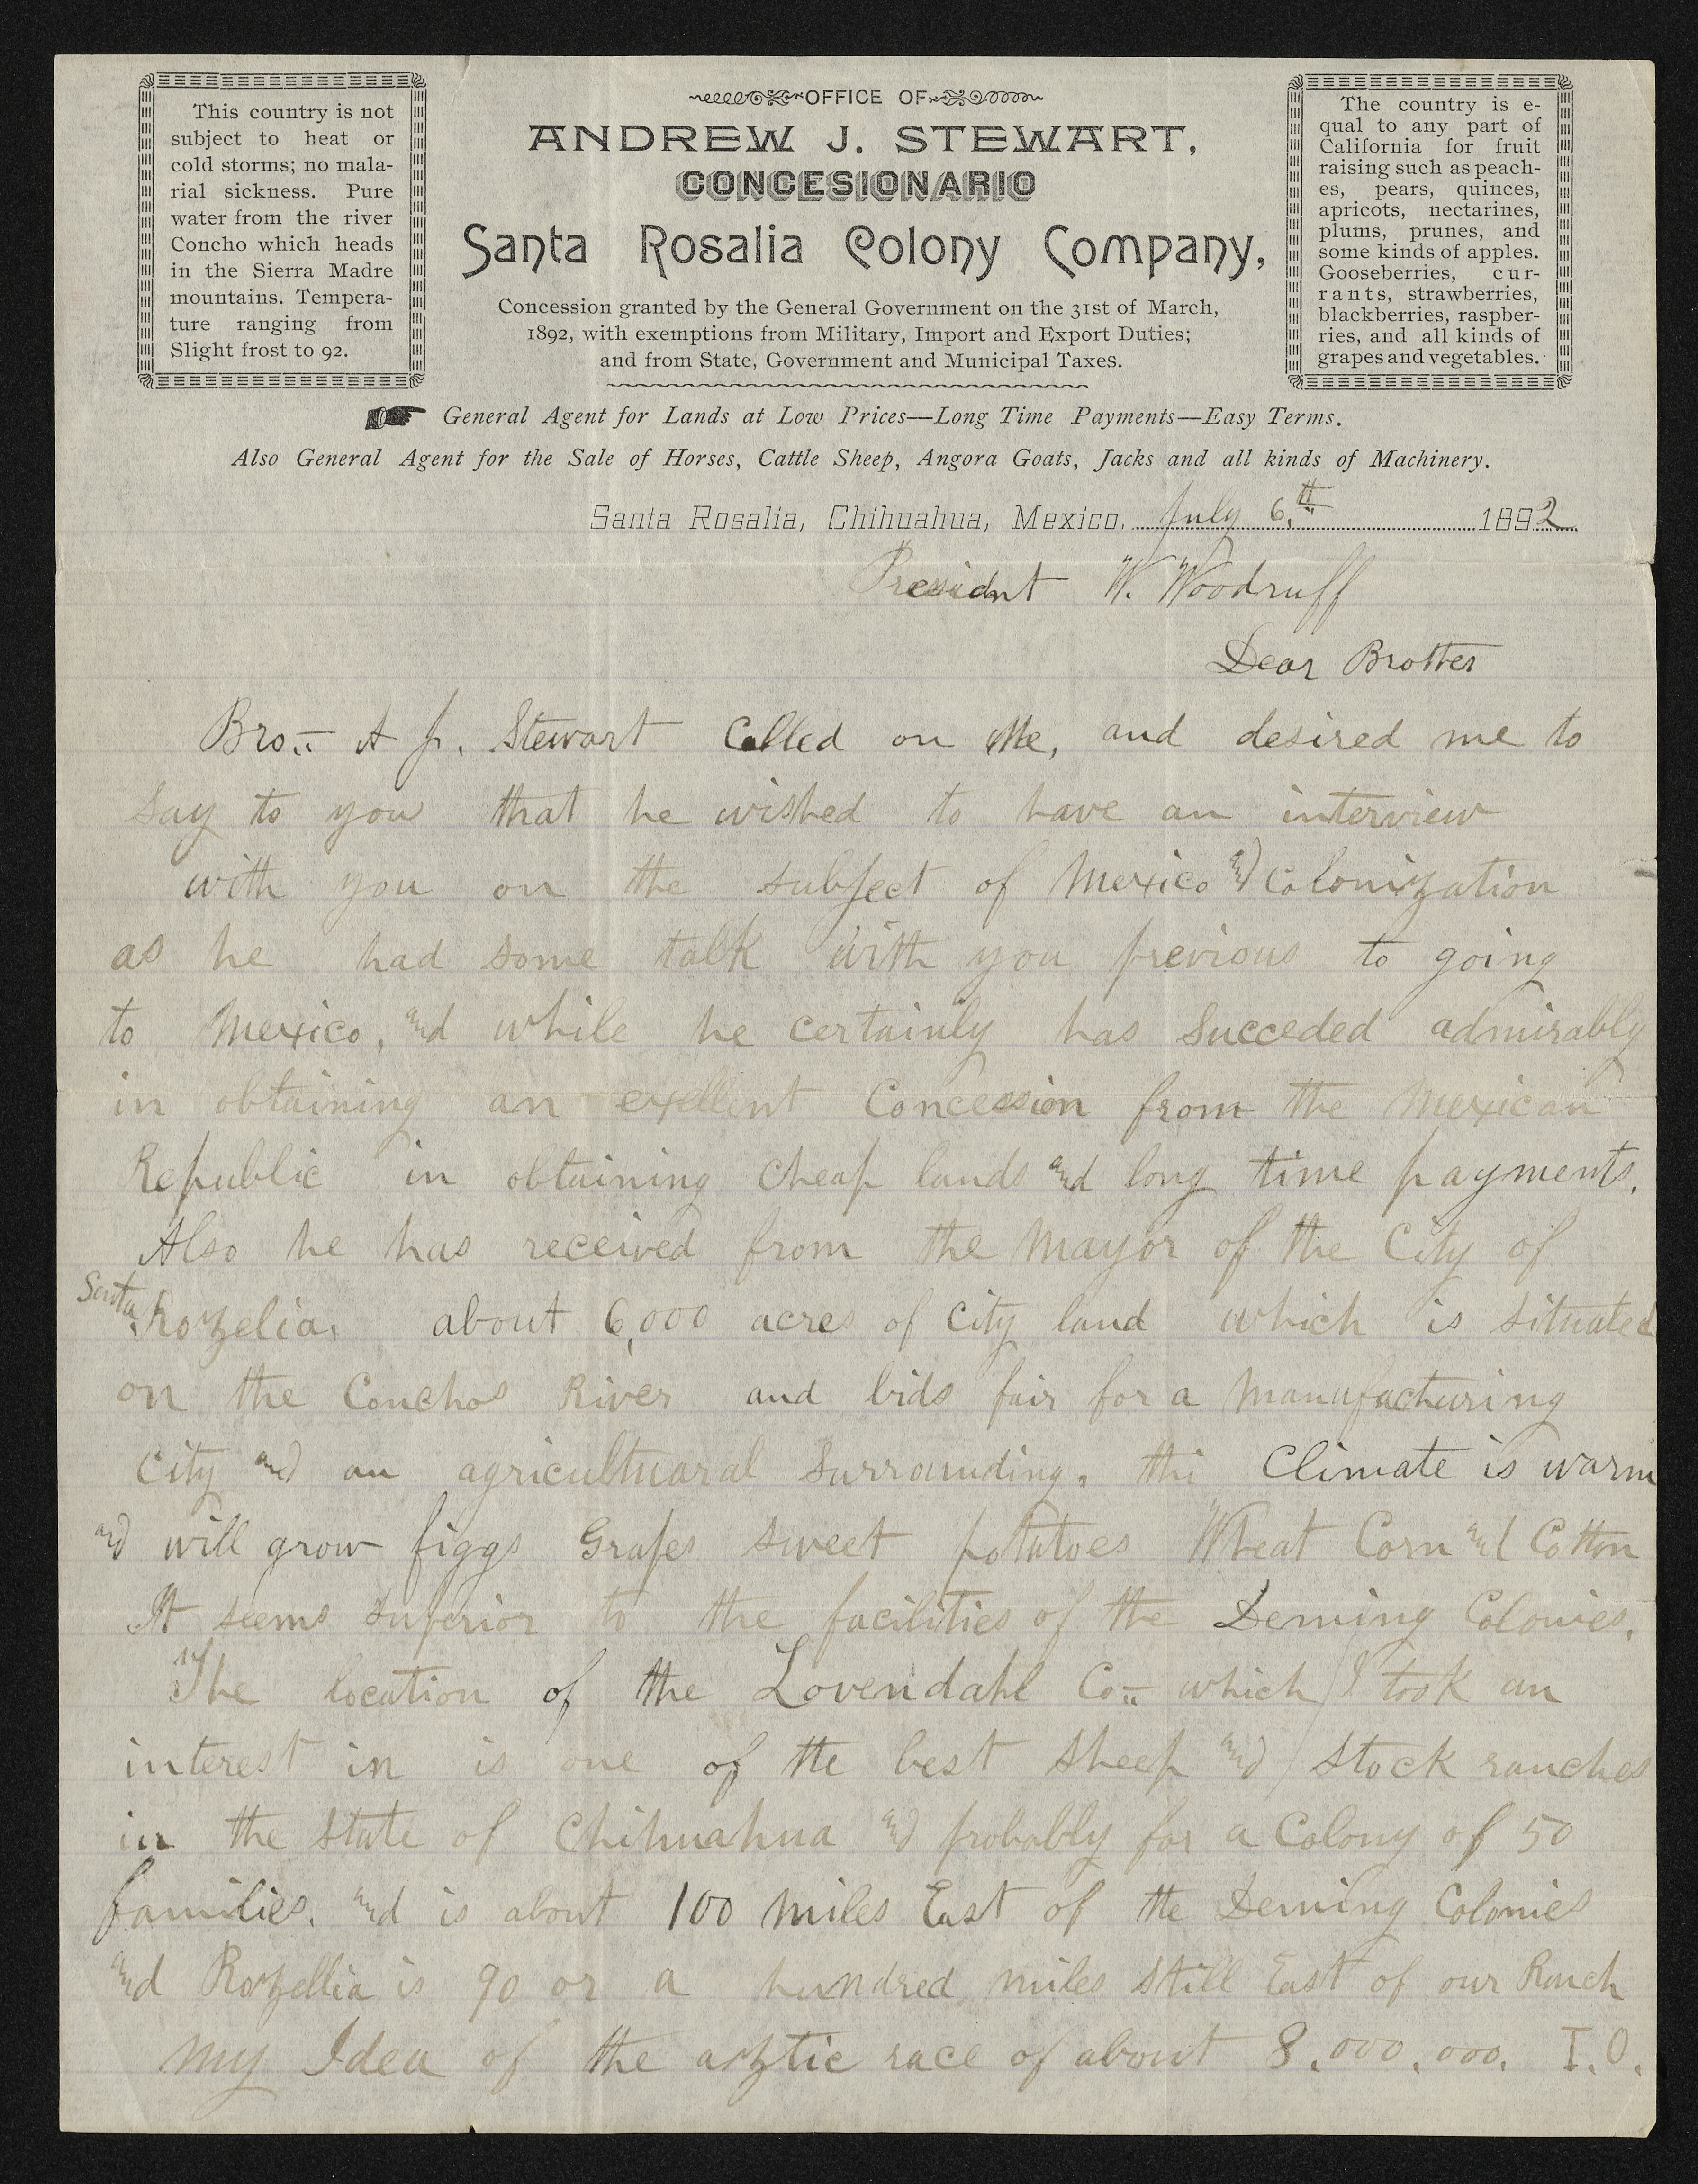 This country is not
subject to heat or
cold storms; no mala-
rial sickness. Pure
water from the river
Concho which heads
in the Sierra Madre
mountains. Tempera-
ture ranging from
Slight frost to 92.
OFFICE OF
ANDREW J. STEWART,
CONCESIONARIO
Santa Rosalia Colony Company,
Concession granted by the General Government on the 31st of March,
1892, with exemptions from Military, Import and Export Duties;
and from State, Government and Municipal Taxes.
The country is e-
qual to any part of
California for fruit
raising such as peach-
es, pears, quinces,
apricots, nectarines,
plums, prunes, and
some kinds of apples.
Gooseberries, cur-
rants, strawberries,
blackberries, raspber-
ries, and all kinds of
grapes and vegetables.
General Agent for Lands at Low Prices—Long Time Payments—Easy Terms.
Also General Agent for the Sale of Horses, Cattle Sheep, Angora Goats, Jacks and all kinds of Machinery.
Santa Rosalia, Chihuahua, Mexico. July 6.th 1892
President W. Woodruff
Dear Brother
Bro. A J. Stewart Called on Me, and desired me to
say to you that he wished to have an interview
with you on the subject of Mexico and Colonization
as he had some talk with you previous to going
to Mexico, and while he certainly has Succeded admirably
in obtaining an exellent Concession from the Mexican
Republic in obtaining cheap lands and long time payments.
Also he has received from the Mayor of the City of
Santa Rozelia, about 6,000 acres of City land which is situated
on the Conchos River and bids fair for a Manufacturing
City and an agricultuaral Surrounding. the Climate is warm
and will grow figgs Grapes sweet potatoes Wheat Corn and Cotton
It seems superior to the facilities of the Deming Colonies.
The location of the Lovendahl Co. which I took an
interest in is one of the best sheep and Stock ranches
in the State of Chihuahua and probably for a Colony of 50
families. and is about 100 Miles East of the Deming Colonies
and Rozellia is 90 or a hundred miles still East of our Ranch
My Idea of the aztic race of about 8,000,000. I.O.